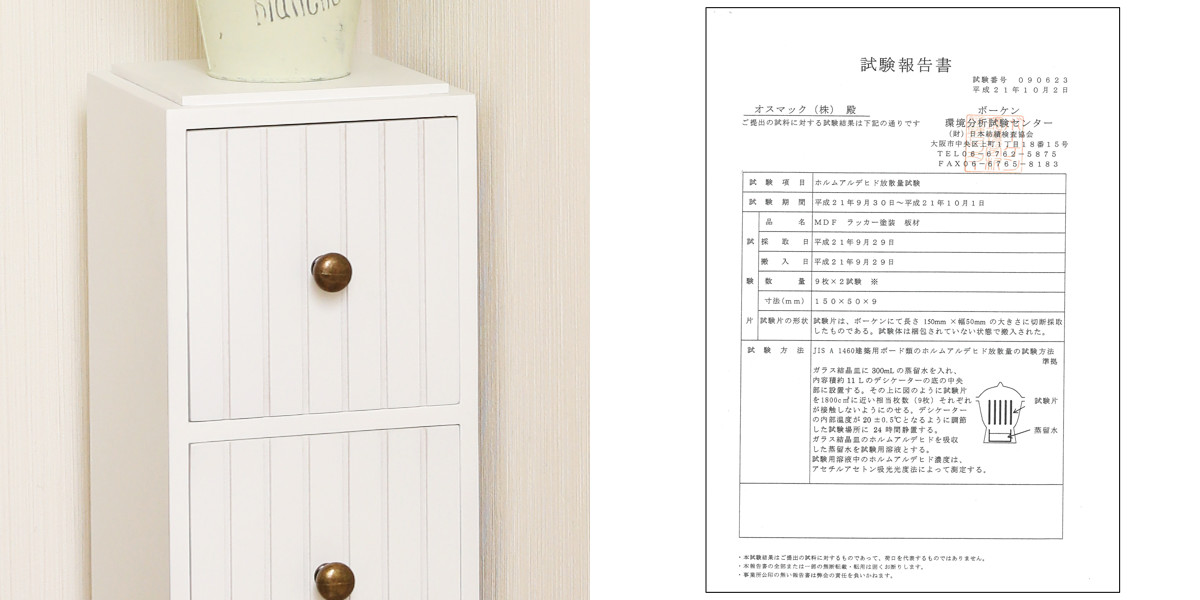 blanche
試験報告書
試験番号 090623
平成21年10月2日
オスマック(株) 殿
ご提出の試料に対する試験結果は下記の通りです
ボーケン
環境分析試験センター
(財)日本紡績検査協会
大阪市中央区上町1丁目18番15号
TEL06-6762-5875
FAX06-6765-8183
試験項目 ホルムアルデヒド放散量試験
試験期間 平成21年9月30日~平成21年10月1日
試験片
品名 MDF ラッカー塗装 板材
採取日 平成21年9月29日
搬入日 平成21年9月29日
数量 9枚×2試験 ※
寸法(mm) 150×50×9
試験片の形状 試験片は、ボーケンにて長さ 150mm ×幅50mm の大きさに切断採取
したものである。試験体は梱包されていない状態で搬入された。
試験方法 JIS A 1460建築用ボード類のホルムアルデヒド放散量の試験方法
準拠
ガラス結晶皿に 300mL の蒸留水を入れ、
内容積約11Lのデシケーターの底の中央
部に設置する。その上に図のように試験片
を1800c㎡に近い相当枚数(9枚)それぞれ
が接触しないようにのせる。デシケーター
の内部温度が 20 ±0.5℃となるように調節
した試験場所に 24 時間静置する。
ガラス結晶皿のホルムアルデヒドを吸収
した蒸留水を試験用溶液とする。
試験用溶液中のホルムアルデヒド濃度は、
アセチルアセトン吸光光度法によって測定する。
試験片
蒸留水
・本試験結果はご提出の試料に対するものであって、荷口を代表するものではありません。
・本報告書の全部または一部の無断転載・転用は固くお断りします。
・事業所公印の無い報告書は弊会の責任を負いかねます。